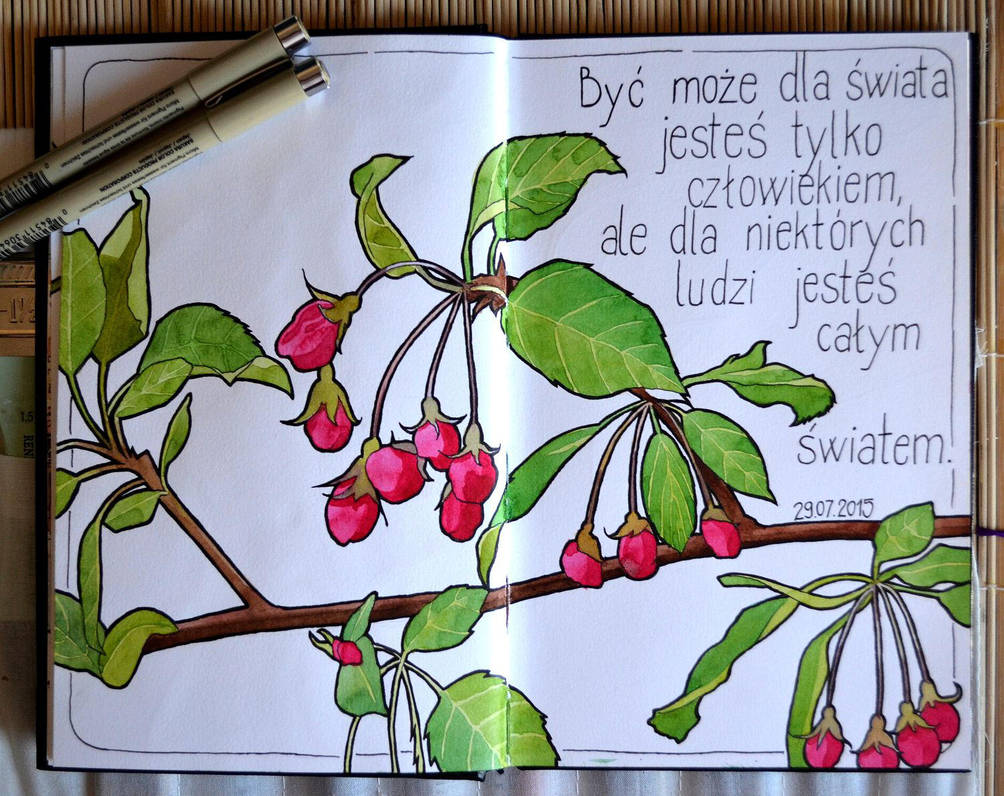 Być może dla świata
jesteś tylko
człowiekiem,
ale dla niektórych
ludzi jesteś
całym
światem.
29.07.2015